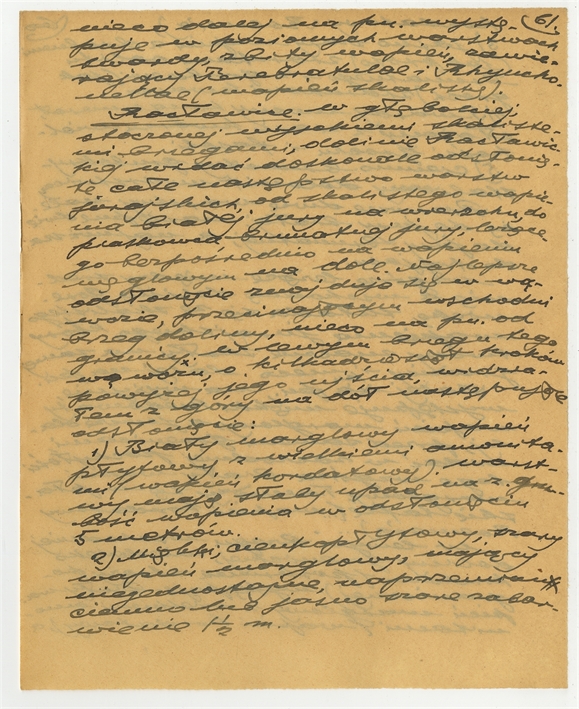 61.
nieco dalej na pn. wystę-
puje w poziomych warstwach
twardy, zbity wapień, zawie-
rający Terebratulae i Rhyncho-
nellae (wapień skalisty).
Racławice. W głębokiej,
otoczonej wysokiemi skaliste-
mi brzegami, dolinie Racławic-
kiej widać doskonale odsłonię-
te całe następstwo warstw
jurajskich, od skalistego wapie-
nia białej jury na wierzchu, do
piaskowca brunatnej jury, leżące-
go bezpośrednio na wapieniu
węglowym na dole. Najlepsze
odsłonięcie znajduje się w wą-
wozie, przecinającym wschodni
brzeg doliny, nieco na pn. od
granicy. W lewym brzegu tego
wąwozu, o kilkadziesiąt kroków
powyżej jego ujścia, widzia-
łem z góry na dół następujące
odsłonięcie:
1) Biały marglowy wapień
płytowy z wielkiemi amonita-
mi (wapień kordatowy). Warst-
wy mają słaby upad na z. gru-
bość wapienia w odsłonięciu
5 metrów.
2) Miękki, cienkopłytowy, szary
wapień marglowy, mający
niejednostajne, naprzemian
ciemno lub jasno szare zabar-
wienie 1½ m.